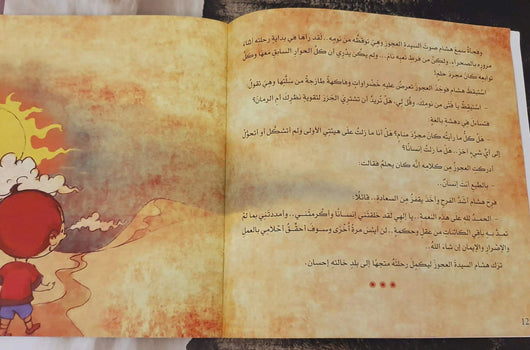 وفجأة سمع هشام صوت السيدة العجوز وهي توقظه من نومه.. لقد رآها في بداية رحلته أثناء
مروره بالصحراء، ولكن من فرط تعبه نام... ولم يكن يدري أن كل الحوار السابق معها وكل
توابعه كان مجرد حلم!
استيقظ هشام فوجد العجوز تعرض عليه خضراوات وفاكهة طازجة من سلتها وهي تقول:
- استيقظ يا فتى من نومك، وقل لي، هل تريد أن تشتري الجزر لتقوية نظرك أم الرمان؟
فتساءل في دهشة بالغة:
- هل كل ما رأيته كان مجرد منام؟ هل أنا ما زلت على هيئتي الأولى ولم أتشكل أو أتحول
إلى أي شيء آخر.. هل ما زلت إنسانًا؟
أدركت العجوز من كلامه أنه كان يحلم فقالت:
- بالطبع أنت إنسان..
فرح هشام أشد الفرح وأخذ يقفز من السعادة.. قائلًا:
- الحمد لله على هذه النعمة.. يا إلهي لقد خلقتني إنسانًا وأكرمتني.. وأمددتني بما لم
تمد به باقي الكائنات من عقل وحكمة.. لن أيأس مرة أخرى وسوف أحقق أحلامي بالعمل
والإصرار والإيمان إن شاء الله..
ترك هشام السيدة العجوز ليكمل رحلته متجهًا إلى بلد خالته إحسان.
12